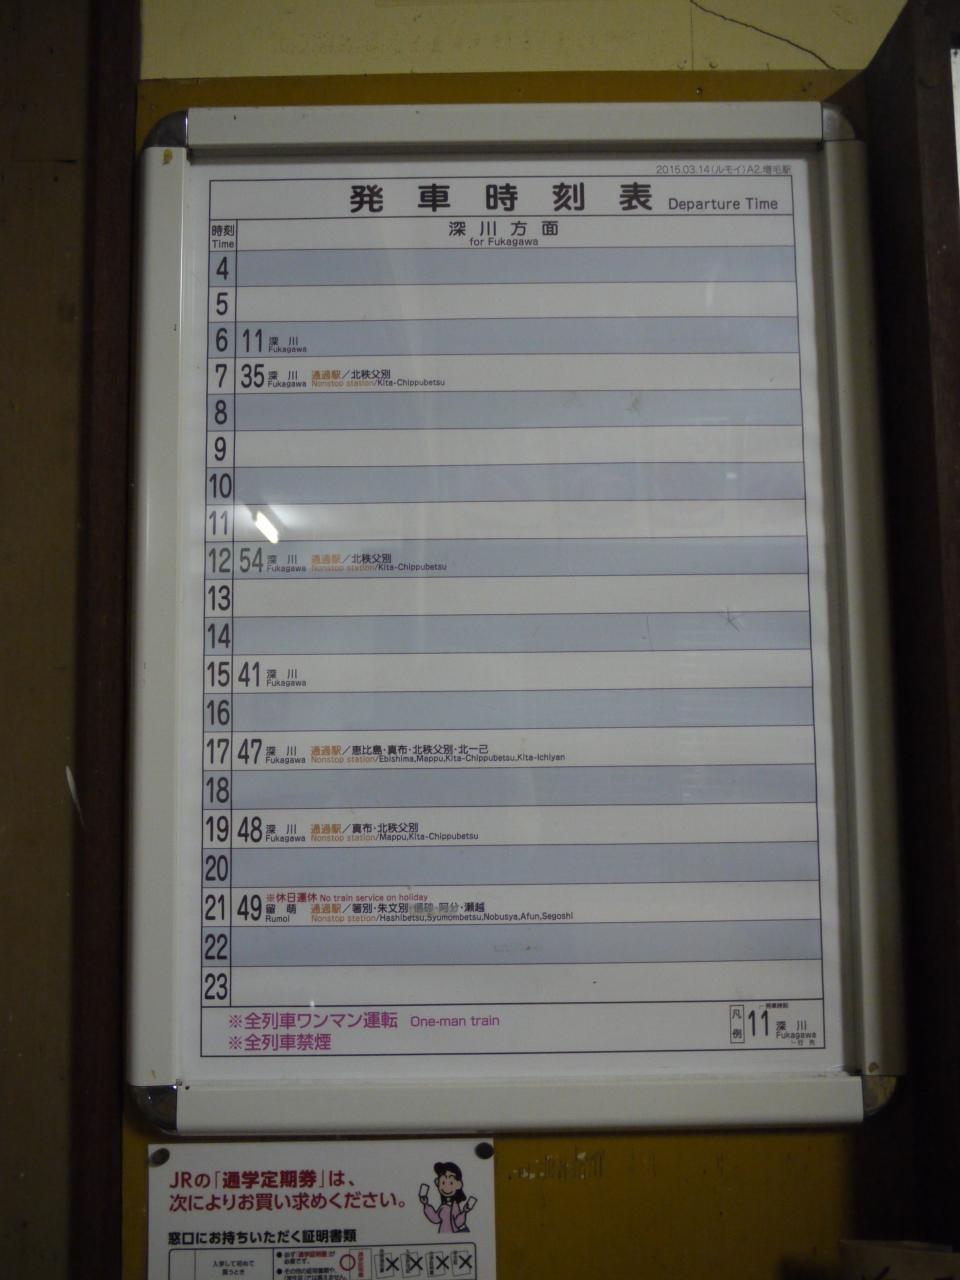 2015.03.14(ルモイ)A2.増毛駅
発車時刻表 Departure Time
時刻 Time
深川方面
for Fukagawa
4
5
6 11 深川 Fukagawa
7 35 深川 Fukagawa 通過駅/北秩父別 Nonstop station/Kita-Chippubetsu
8
9
10
11
12 54 深川 Fukagawa 通過駅/北秩父別 Nonstop station/Kita-Chippubetsu
13
14
15 41 深川 Fukagawa
16
17 47 深川 Fukagawa 通過駅/恵比島・真布・北秩父別・北一己 Nonstop station/Ebishima,Mappu,Kita-Chippubetsu,Kita-Ichiyan
18
19 48 深川 Fukagawa 通過駅/真布・北秩父別 Nonstop station/Mappu,Kita-Chippubetsu
20
※休日運休 No train service on holiday
21 49 留萌 Rumoi 通過駅/箸別・朱文別・信砂・阿分・瀬越 Nonstop station/Hashibetsu,Syumombetsu,Nobusya,Afun,Segoshi
22
23
※全列車ワンマン運転 One-man train
※全列車禁煙
凡例 発車時刻 11 深川 Fukagawa 行先
JRの「通学定期券」は、
次によりお買い求めください。
窓口にお持ちいただく証明書類
入学して初めて
買うとき
●必ず「通学証明書」が
必要です。
●その他の証明書類や、